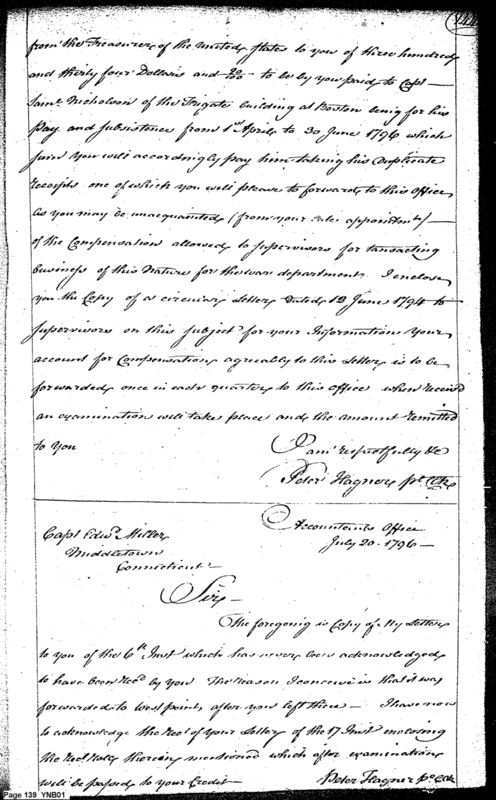 from the Treasurer of the United States to you of three hundred
and thirty four Dollars and /100 to be by you paid to Capt
Saml. Nicholson of the Frigate building at Boston being for his
Pay and subsistence from 1st April to 30 June 1796 which
sum you will accordingly pay him taking his Duplicate
receipts one of which you will please to forward to this office
As you may be unacquainted (from your late appointment)
of the Compensation allowed to supervisors for transacting
business of this Nature for the war department I enclose
you the Copy of a circular Letter Dated 12 June 1794 to
supervisors on this subject for your Information Your
account for Compensation agreeably to this Letter is to be
forwarded once in each quarter to this office when receiv'd
an examination will take place and the amount remitted
to you
I am respectfully &c
Peter Hagner pl Clk
Accountants Office
July 20. 1796
Capt Edwd. Miller
Middletown
Connecticut
Sir
The foregoing is Copy of My Letter
to you of the 6th Inst which has never been acknowledged
to have been Recd by you The reason I conceive is that it was
forwarded to West point after you left there I have now
to acknowledge the Rect of your Letter of the 17 Inst enclosing
the Rect Rolls therein mentioned which after examination
will be passed to your Credit
Peter Hagner pl Clk
Page 139 YNB01